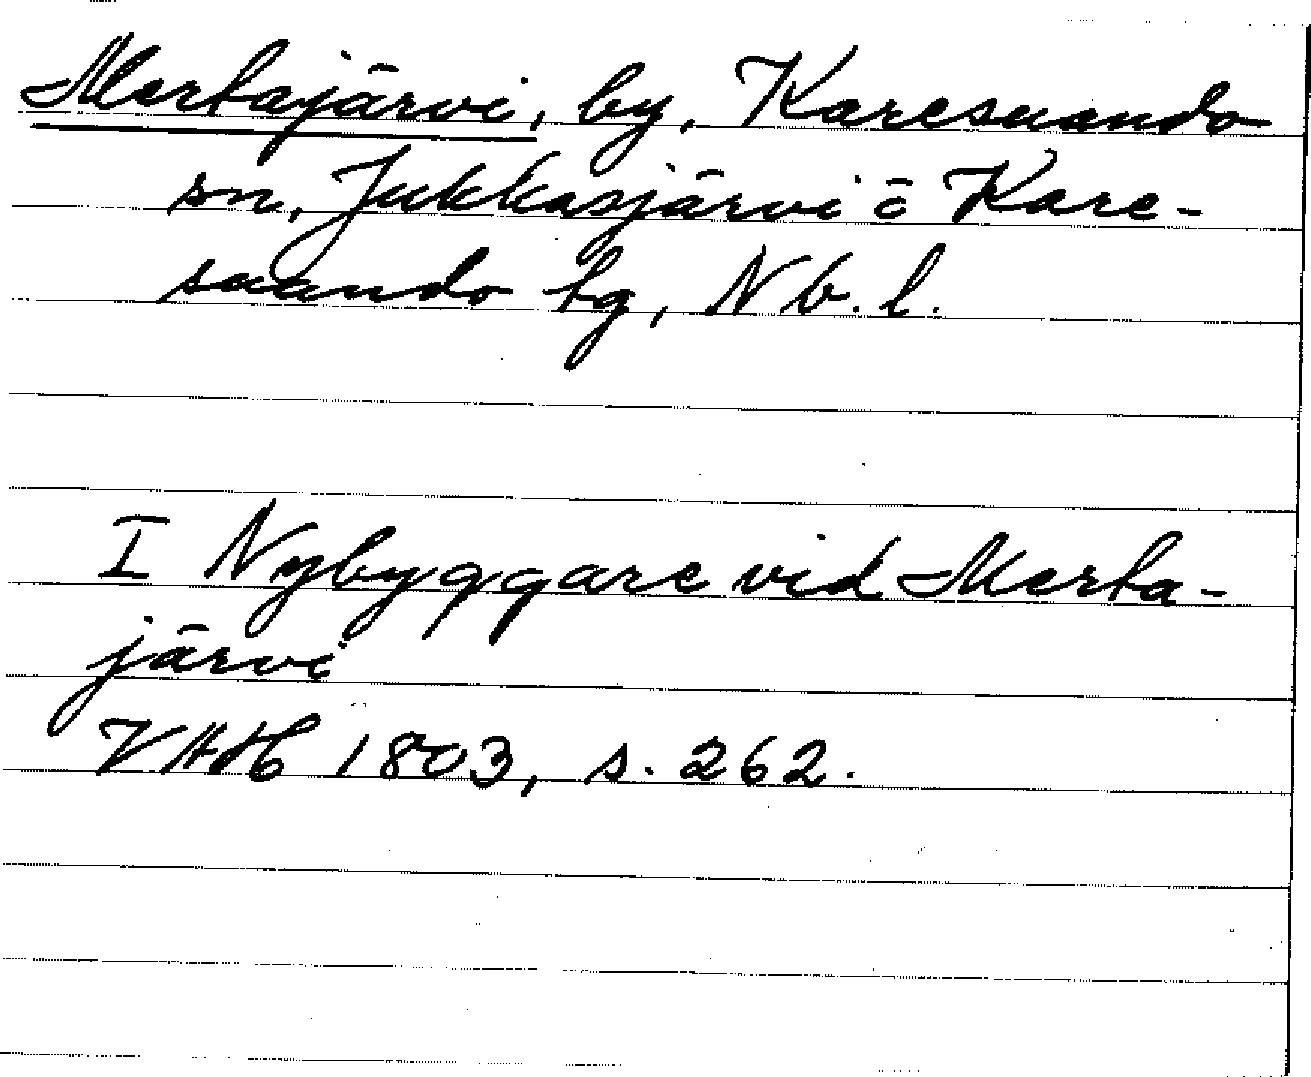 Mertajärvi, by, Karesuando
sn, Jukkasjärvi o Kare-
suando tg, Nb. l.
I Nybyggare vid Merta-
järvi
VHAH 1803, s. 262.